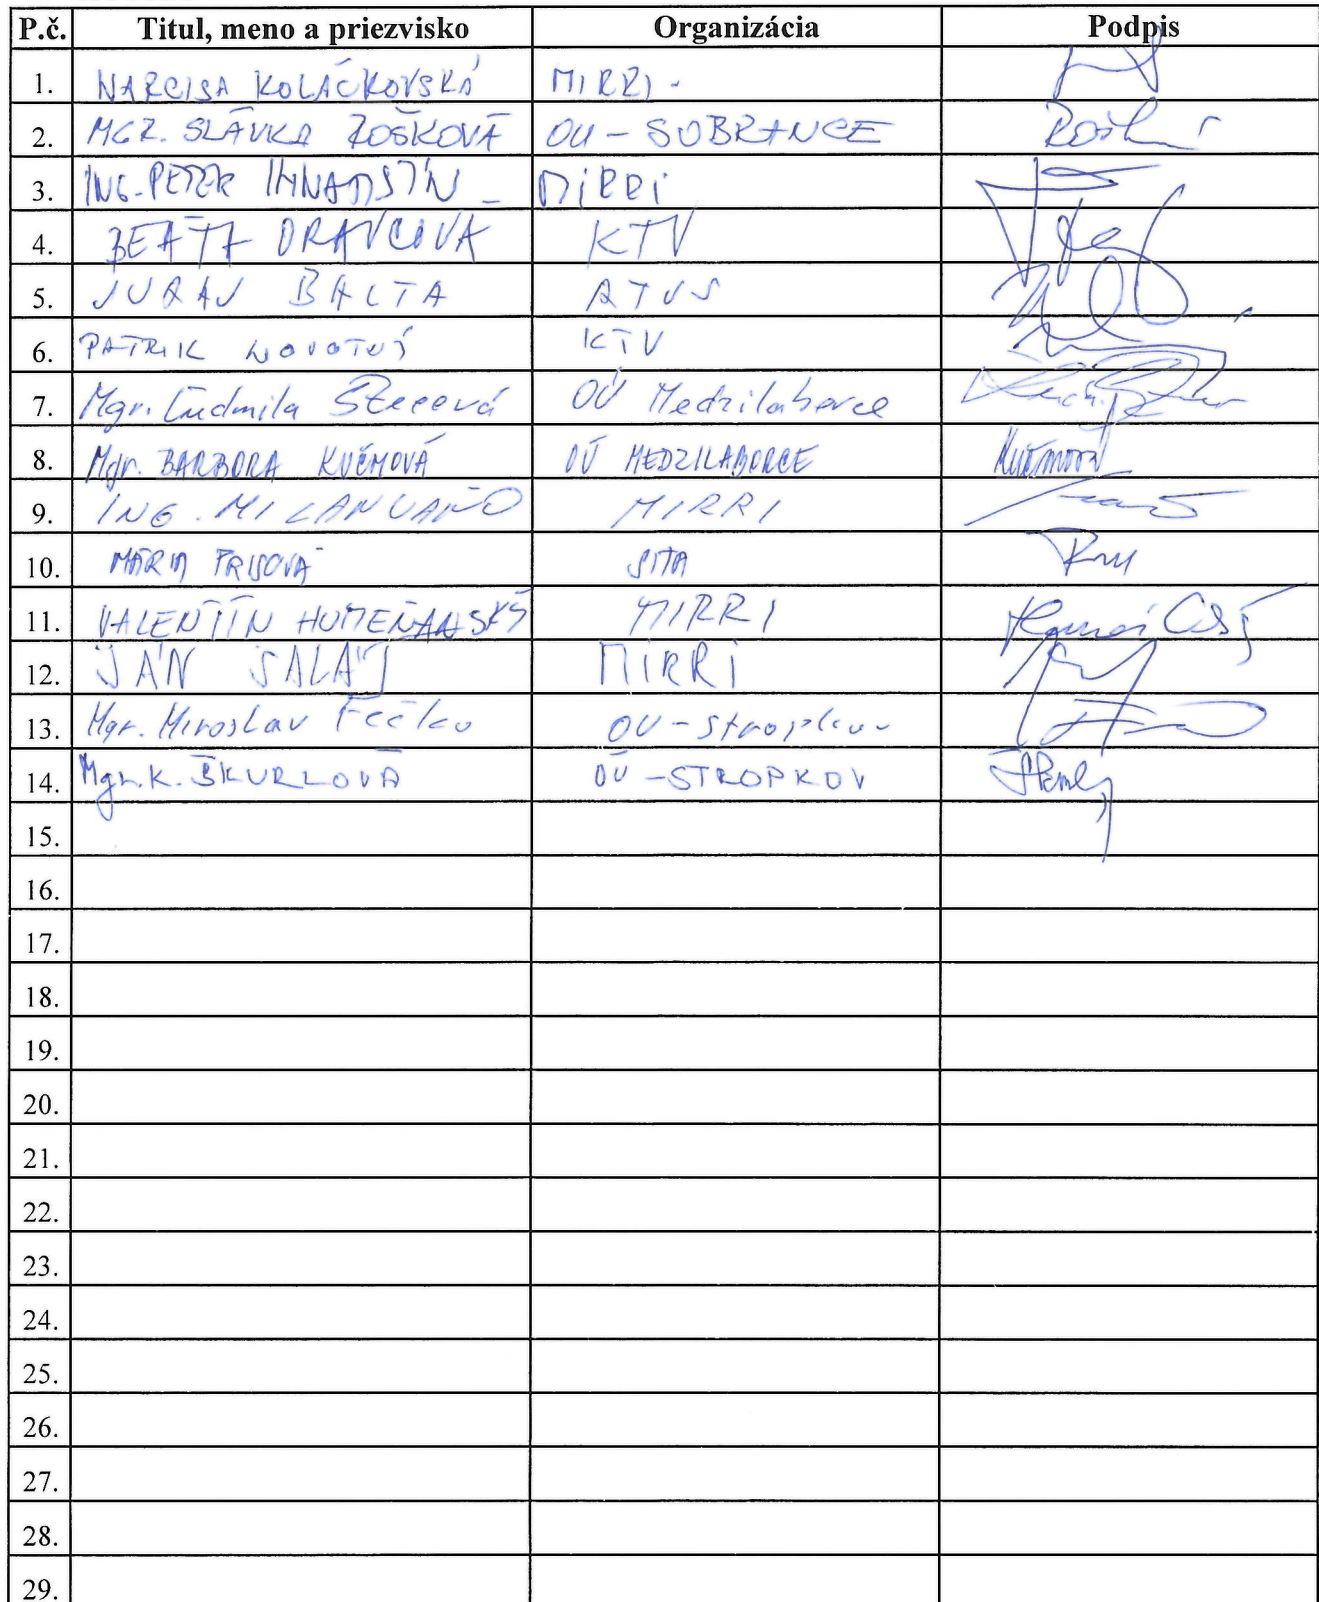 P.č. Titul, meno a priezvisko Organizácia Podpis
1. NARCISA KOLÁČKOVSKÁ MIRRI -
2. MGR. SLÁVKA ROŠKOVÁ OU - SOBRANCE
3. ING. PETER MIRRI
4. BEÁTA ORAVCOVÁ KTV
5. JURAJ BALTA
6. PATRIK NOVOTNÝ KTV
7. Mgr. Ľudmila OÚ Medzilaborce
8. Mgr. BARBORA KUČMOVÁ OÚ MEDZILABORCE Kučmová
9. ING. MILAN VAŇO MIRRI
10. MÁRIA SITA
11. VALENTÍN HUMEŇANSKÝ MIRRI
12. JÁN SALAJ MIRRI
13. Mgr. Miroslav Fečko OU - Stropkov
14. Mgr. K. ŠKURLOVÁ OÚ - STROPKOV
15.
16.
17.
18.
19.
20.
21.
22.
23.
24.
25.
26.
27.
28.
29.